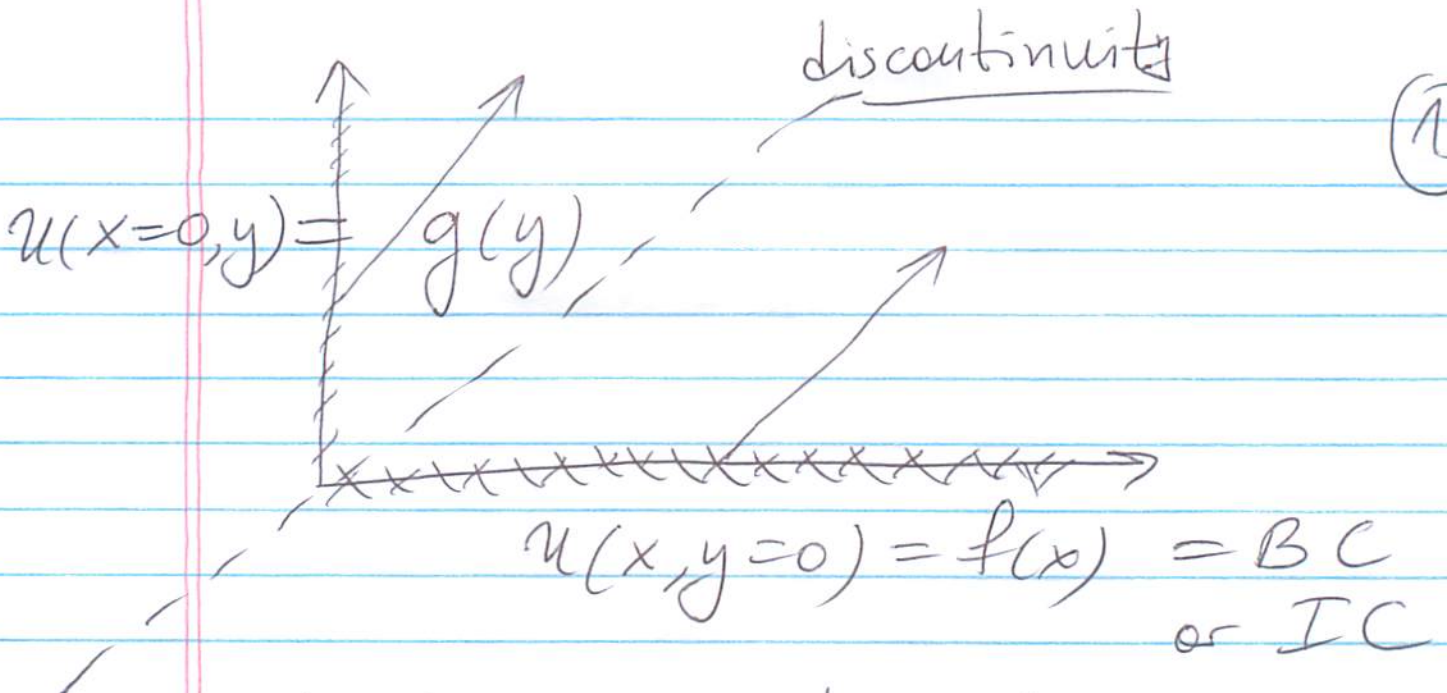 discontinuity
u(x=0,y)= g(y)
u(x,y=0) = f(x) = BC
or IC